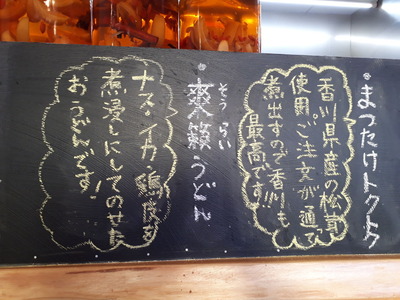 まつたけトクトク
香川県産の松茸
使用。ご注文が通って
煮出すので香りも
最高です
そうらい
うどん
ナス・イカ・鶏皮を
煮浸しにしてのせた
おうどんです!